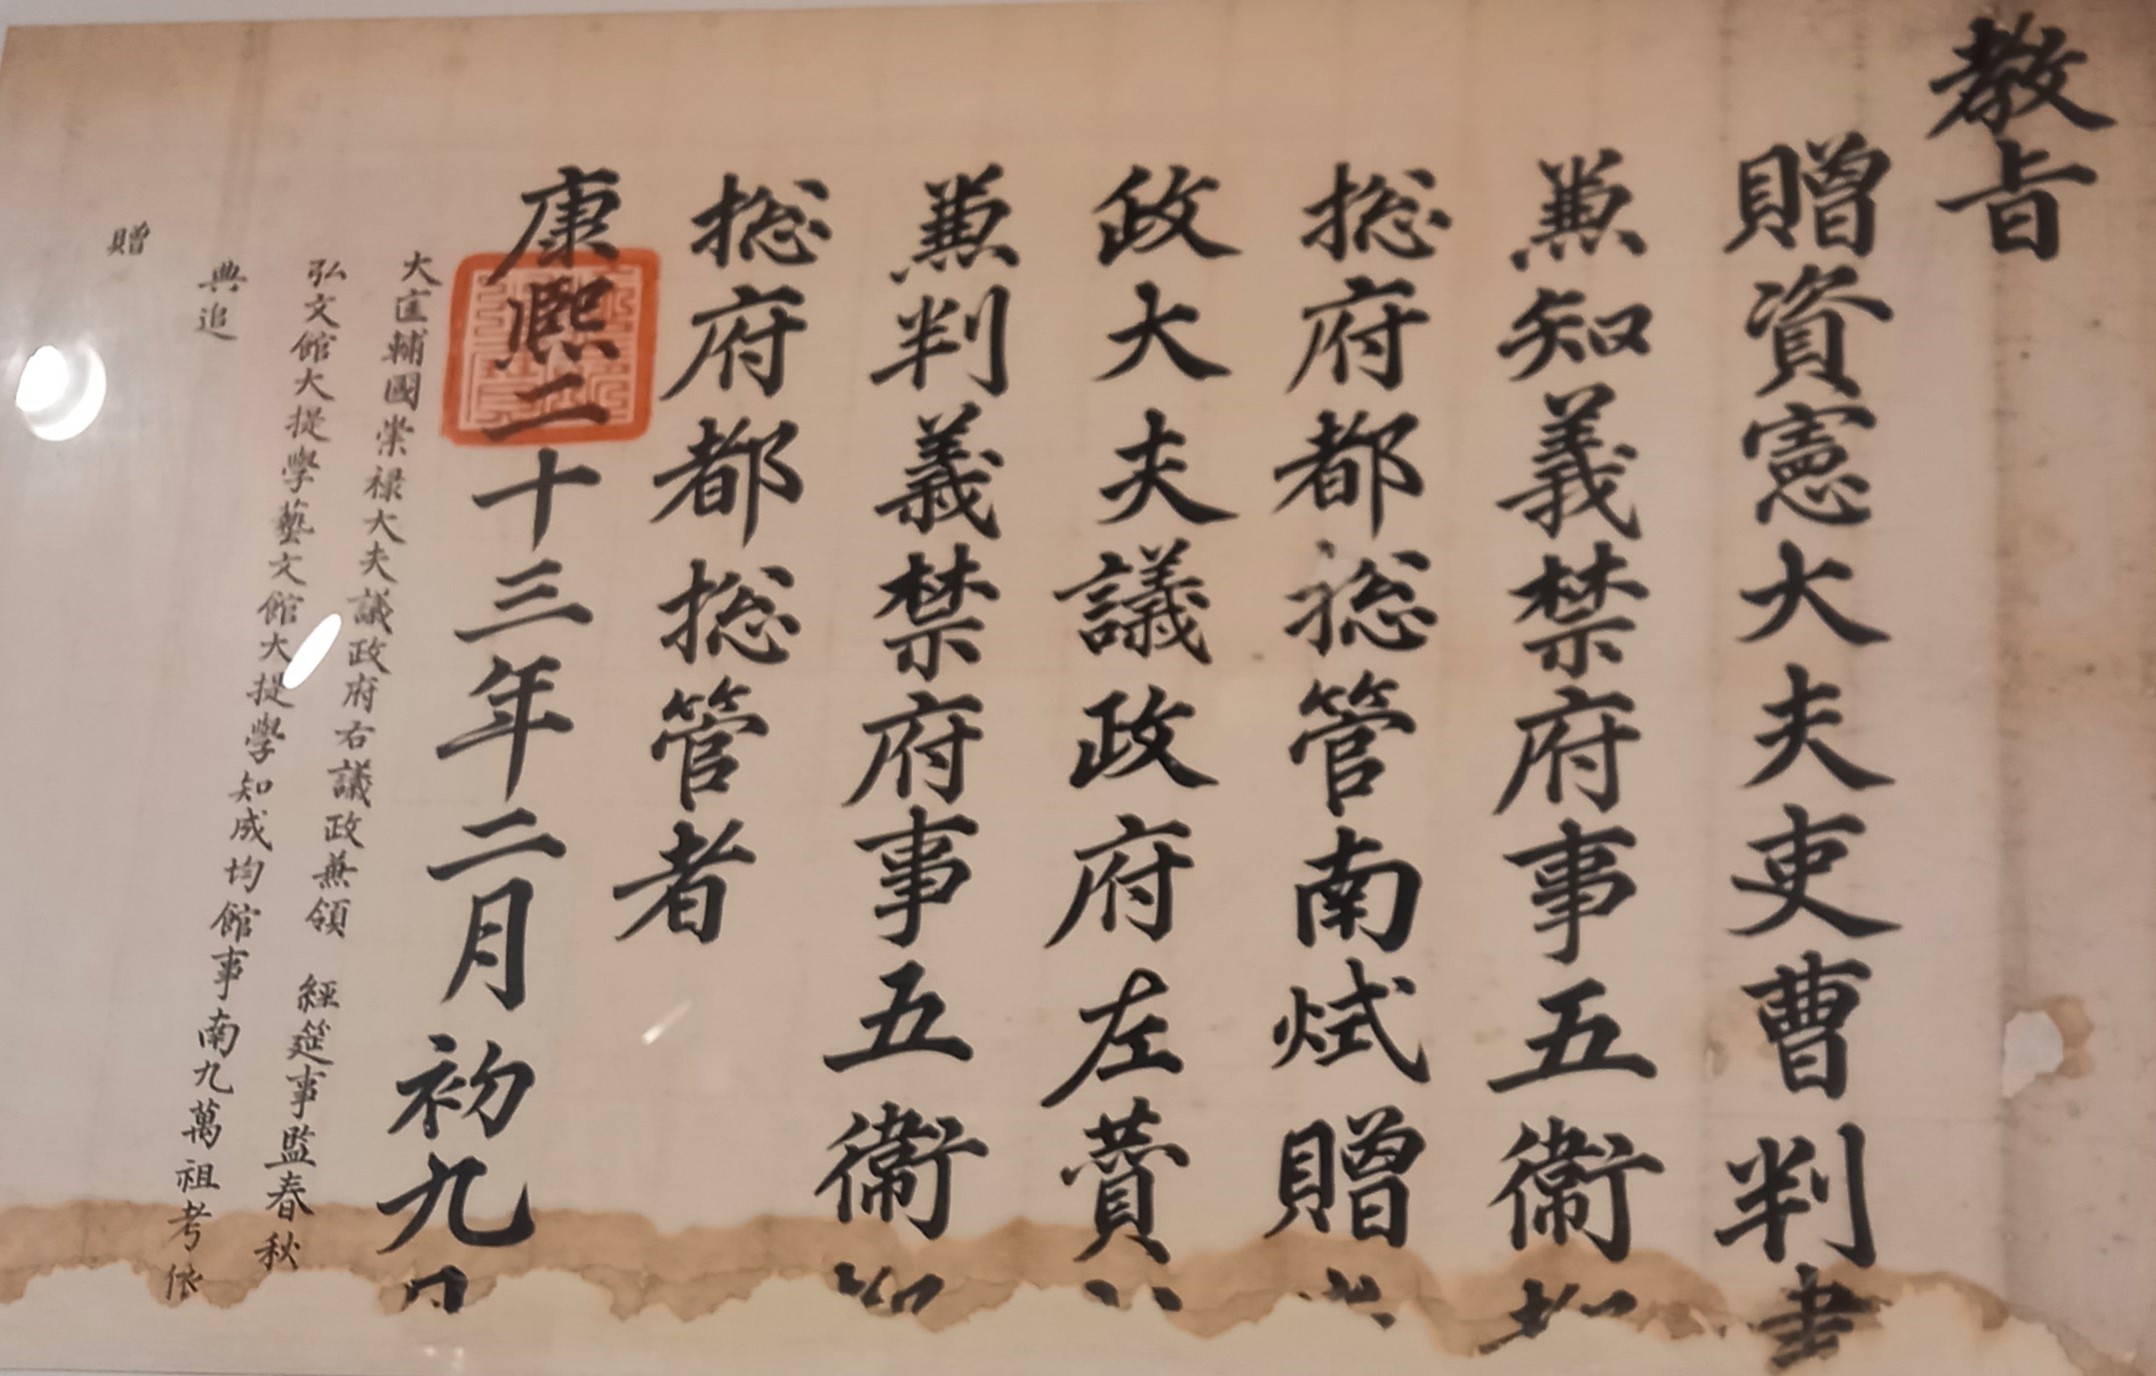 教旨
贈資憲大夫吏曹判書
兼知義禁府事五衛
捴府都捴管南烒贈
政大夫議政府左贊
兼判義禁府事五衛
捴府都捴管者
康熙二十三年二月初九日
大匡輔國崇禄大夫議政府右議政兼領 經筵事監春秋
弘文館大提學藝文館大提學知成均館事南九萬祖考依
典追
贈